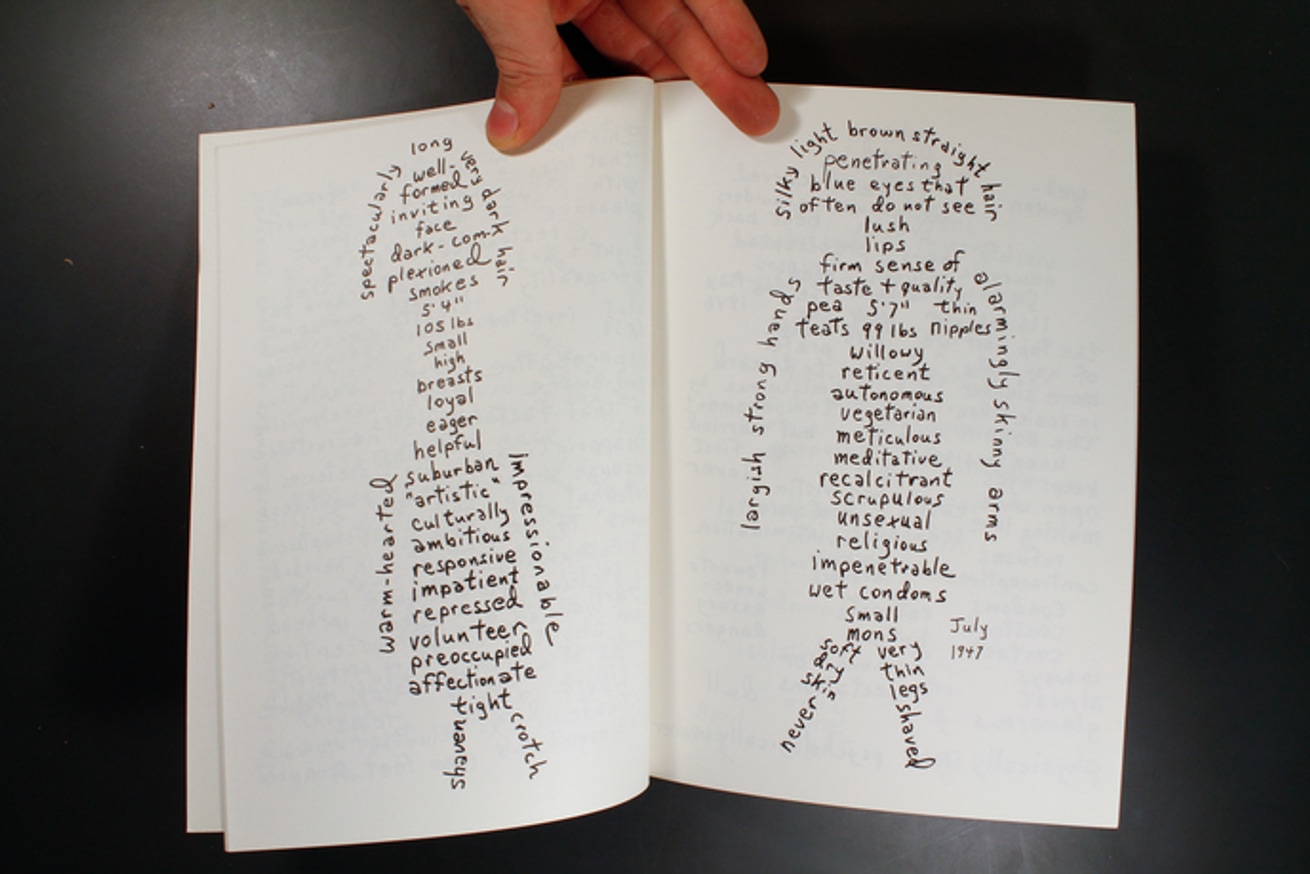 spectacularly
long
very dark hair
well-
formed
inviting
face
dark-com-
plexioned
smokes
5'4"
105 lbs
small
high
breasts
loyal
eager
helpful
suburban
"artistic"
culturally
ambitious
responsive
impatient
repressed
volunteer
preoccupied
affectionate
warm-hearted
impressionable
tight
shaven
crotch
silky light brown straight hair
penetrating
blue eyes that
often do not see
lush
lips
firm sense of
taste + quality
pea 5'7" thin
teats 99 lbs nipples
largish strong hands
alarmingly skinny arms
willowy
reticent
autonomous
vegetarian
meticulous
meditative
recalcitrant
scrupulous
unsexual
religious
impenetrable
wet condoms
small
mons
July
1947
soft
skin
very
thin
legs
never
shaved